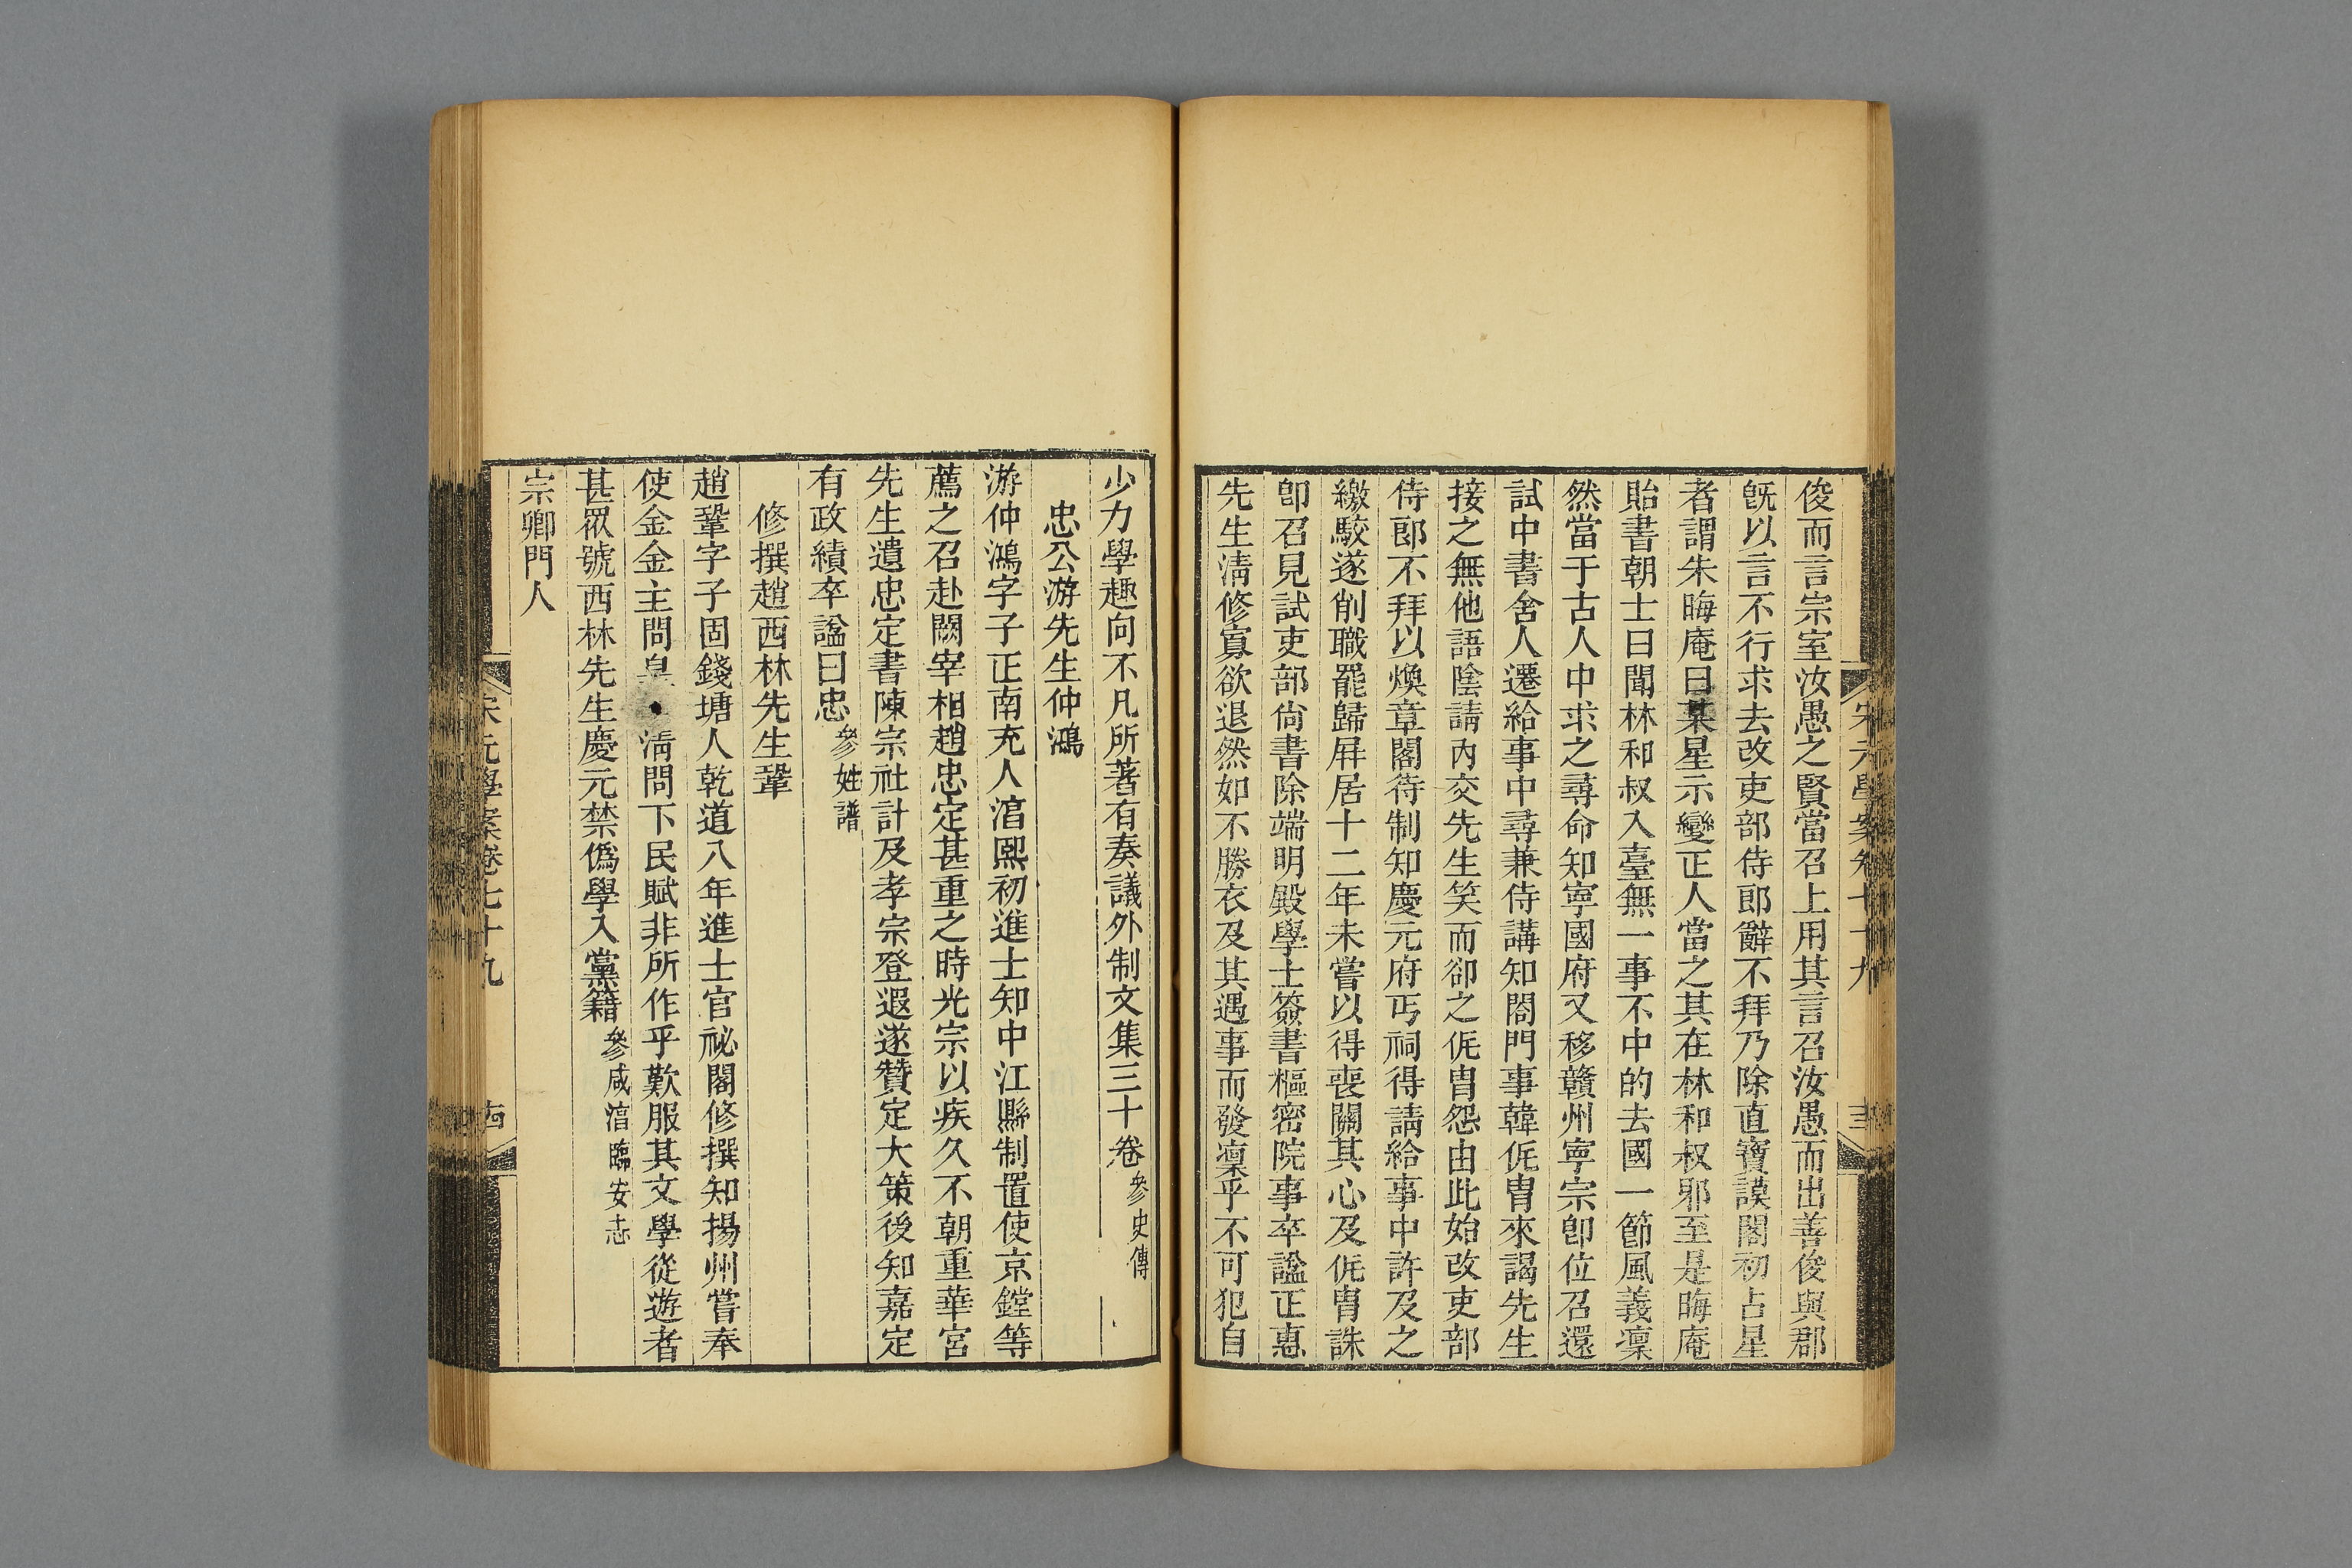 俊而言宗室汝愚之賢當召上用其言召汝愚而出善俊與郡
旣以言不行求去改吏部侍郎辭不拜乃除直寶謨閣初占星
者謂朱晦庵曰某星示變正人當之其在林和叔邪至是晦庵
貽書朝士曰聞林和叔入臺無一事不中的去國一節風義凜
然當于古人中求之尋命知寧國府又移贛州寧宗卽位召還
試中書舍人遷給事中尋兼侍講知閤門事韓侂胄來謁先生
接之無他語陰請內交先生笑而卻之侂胄怨由此始改吏部
侍郎不拜以煥章閣待制知慶元府丐祠得請給事中許及之
繳駮遂削職罷歸屏居十二年未嘗以得喪關其心及侂胄誅
卽召見試吏部尙書除端明殿學士簽書樞密院事卒諡正惠
先生淸修寡欲退然如不勝衣及其遇事而發凜乎不可犯自
少力學趣向不凡所著有奏議外制文集三十卷參史傳
忠公游先生仲鴻
游仲鴻字子正南充人湻熙初進士知中江縣制置使京鏜等
薦之召赴闕宰相趙忠定甚重之時光宗以疾久不朝重華宮
先生遺忠定書陳宗社計及孝宗登遐遂贊定大策後知嘉定
有政績卒諡曰忠參姓譜
修撰趙西林先生鞏
趙鞏字子固錢塘人乾道八年進士官祕閣修撰知揚州嘗奉
使金金主問皇清問下民賦非所作乎歎服其文學從遊者
甚眾號西林先生慶元禁僞學入黨籍參咸湻臨安志
宗卿門人
宋元學案卷七十九